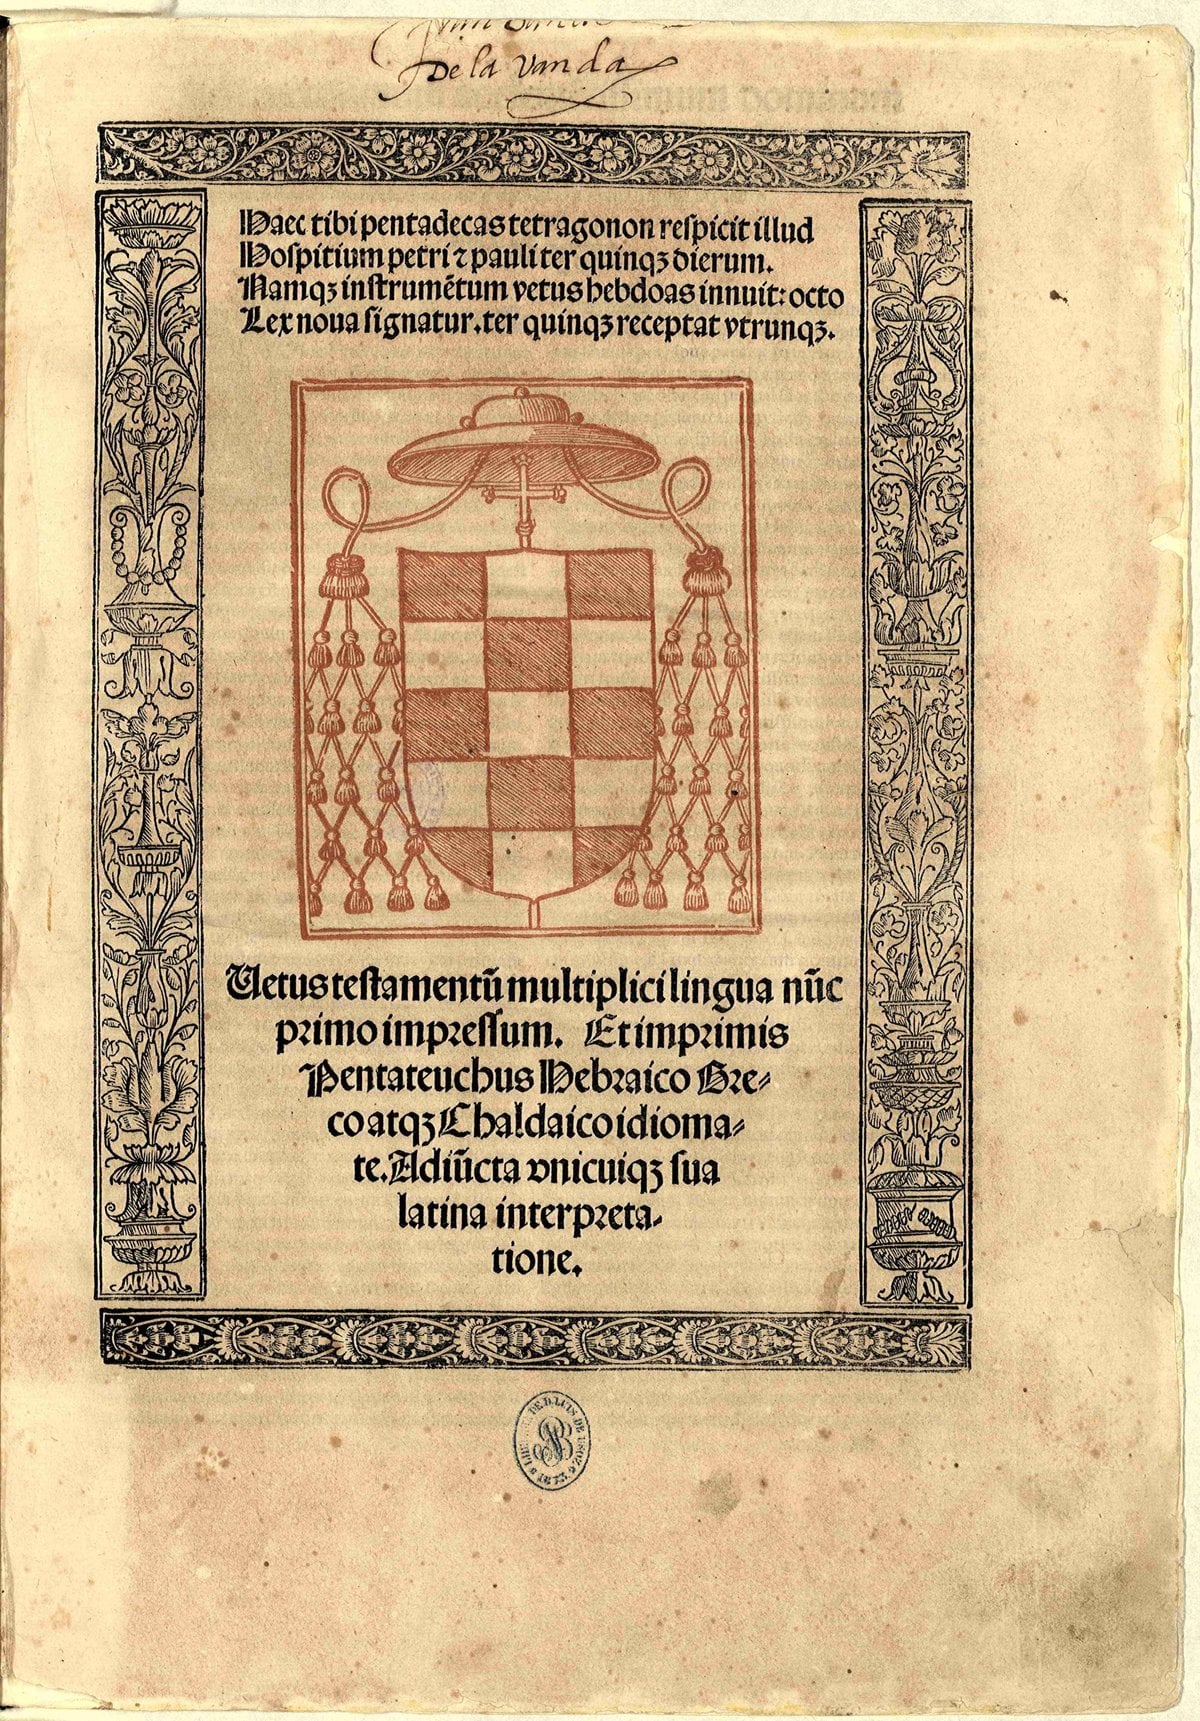 De la Vanda
Haec tibi pentadecas tetragonon respicit illud
Hospitium petri ⁊ pauli ter quinqꝫ dierum.
Namqꝫ instrumētum vetus hebdoas innuit: octo
Lex noua signatur. ter quinqꝫ receptat vtrunqꝫ.
Uetus testamentū multiplici lingua nūc
primo impressum. Et imprimis
Pentateuchus Hebraico Gre-
co atqꝫ Chaldaico idioma-
te. Adiūcta vnicuiqꝫ sua
latina interpreta-
tione.
DE D. LUIS DE USOZ
1873